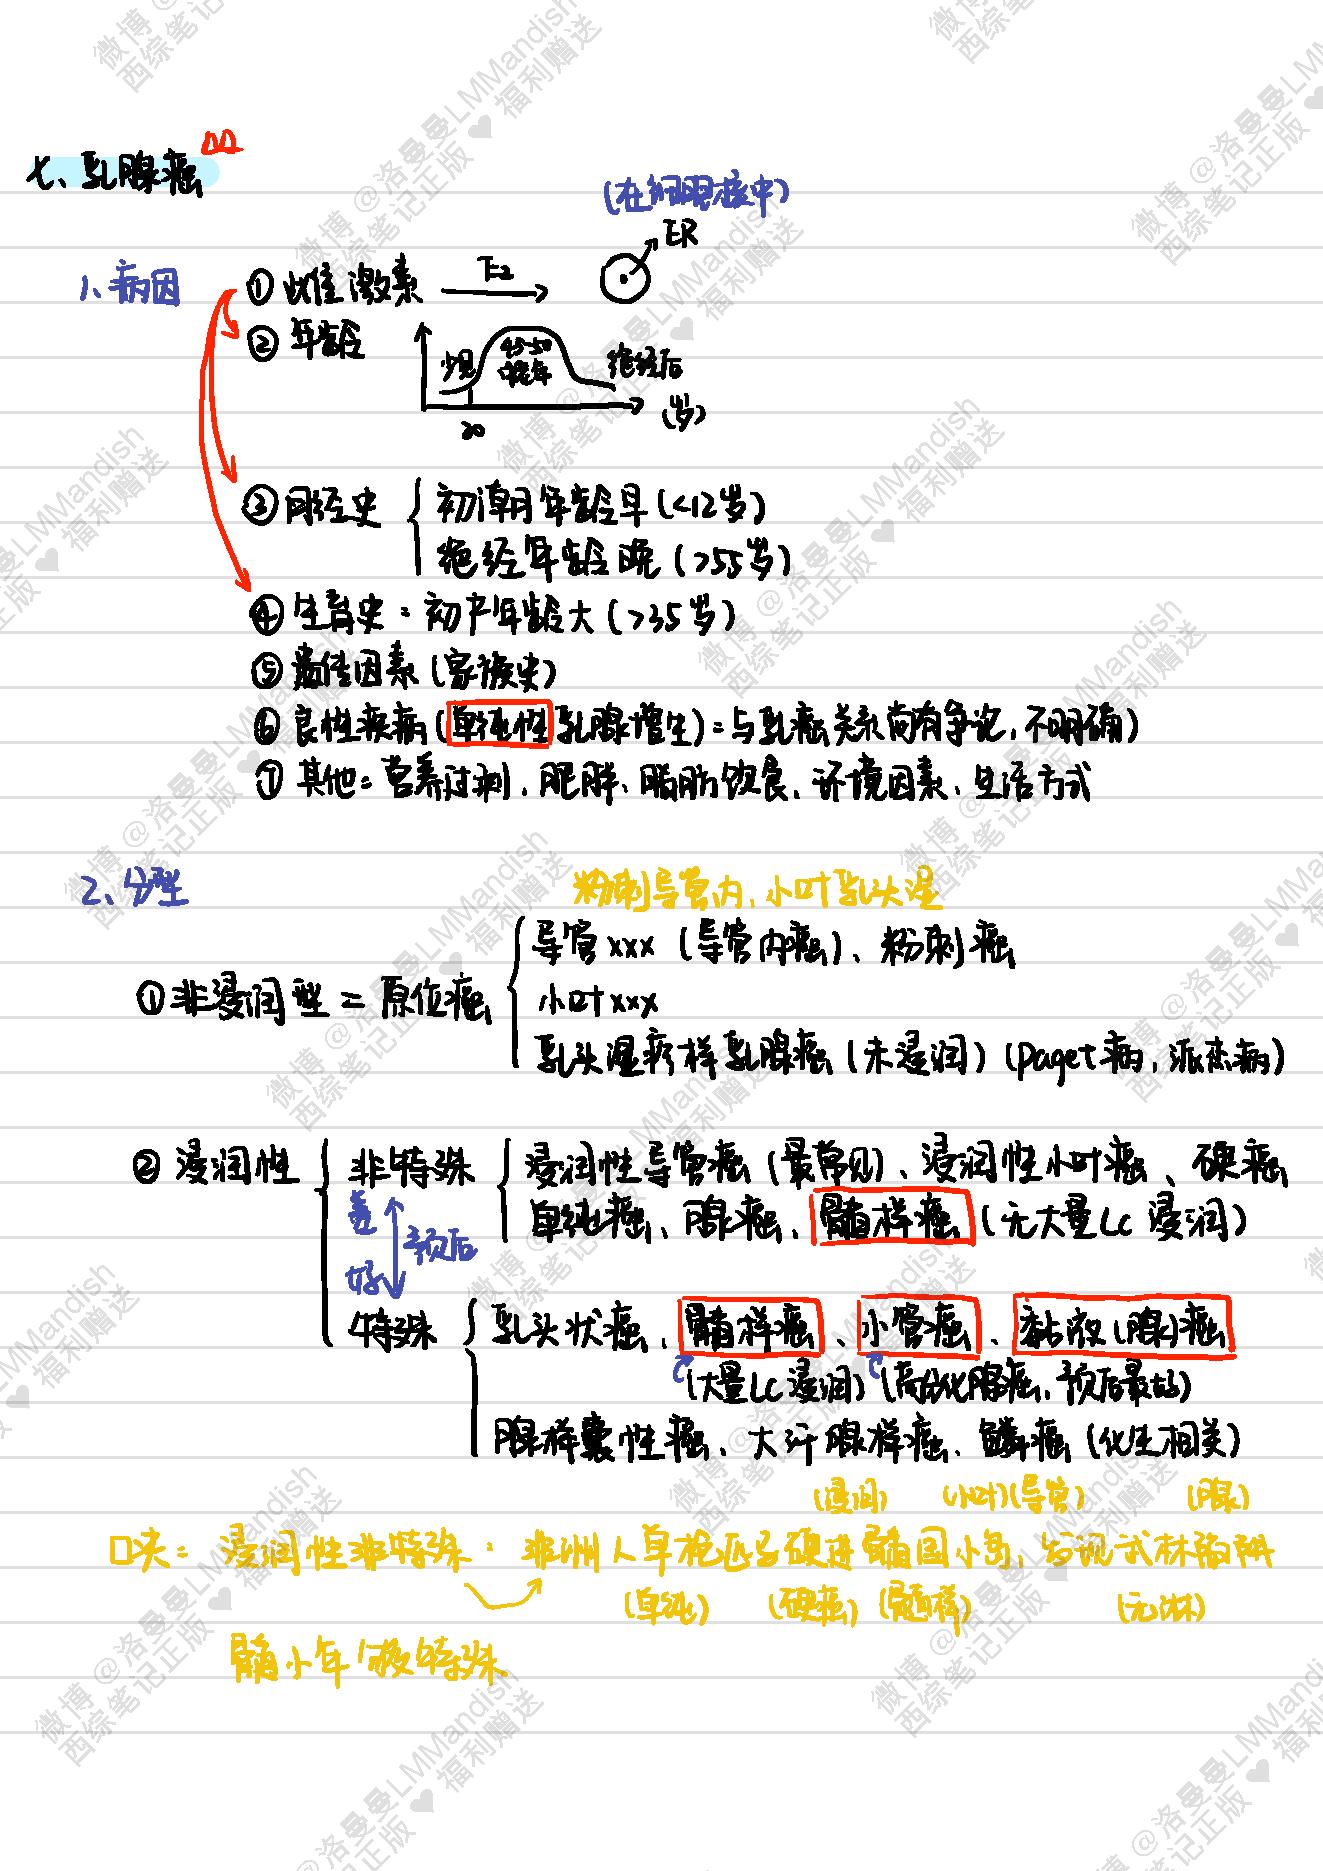 七、乳腺癌 △△
(在细胞核中)
1、病因 ① 雌激素 E2 ER
② 年龄 少见 45-50 绝经后
20 (岁)
③ 月经史 { 初潮年龄早(<12岁)
绝经年龄晚(>55岁)
④ 生育史:初产年龄大(>35岁)
⑤ 遗传因素(家族史)
⑥ 良性疾病(单纯性乳腺增生):与乳癌关系尚有争论,不明确)
⑦ 其他:营养过剩、肥胖、脂肪饮食、环境因素、生活方式
2、分型 粉刺导管内,小叶乳头湿
导管xxx(导管内癌)、粉刺癌
① 非浸润型 = 原位癌 { 小叶xxx
乳头湿疹样乳腺癌(未浸润)(paget病,派杰病)
② 浸润性 { 非特殊 { 浸润性导管癌(最常见)、浸润性小叶癌、硬癌
差 单纯癌、腺癌、髓样癌(无大量LC浸润)
预后
好
特殊 { 乳头状癌、髓样癌、小管癌、黏液(腺)癌
(大量LC浸润)(高分化腺癌,预后最好)
腺样囊性癌、大汗腺样癌、鳞癌(化生相关)
(浸润) (小叶)(导管) (腺)
口决:浸润性非特殊:非洲人单枪匹马硬进髓国小岛,发现武林陷阱
(单纯) (硬癌) (髓样) (无淋)
髓小年 特殊
微博 @洛曼曼LMMandish
西综笔记正版 ♥ 福利赠送